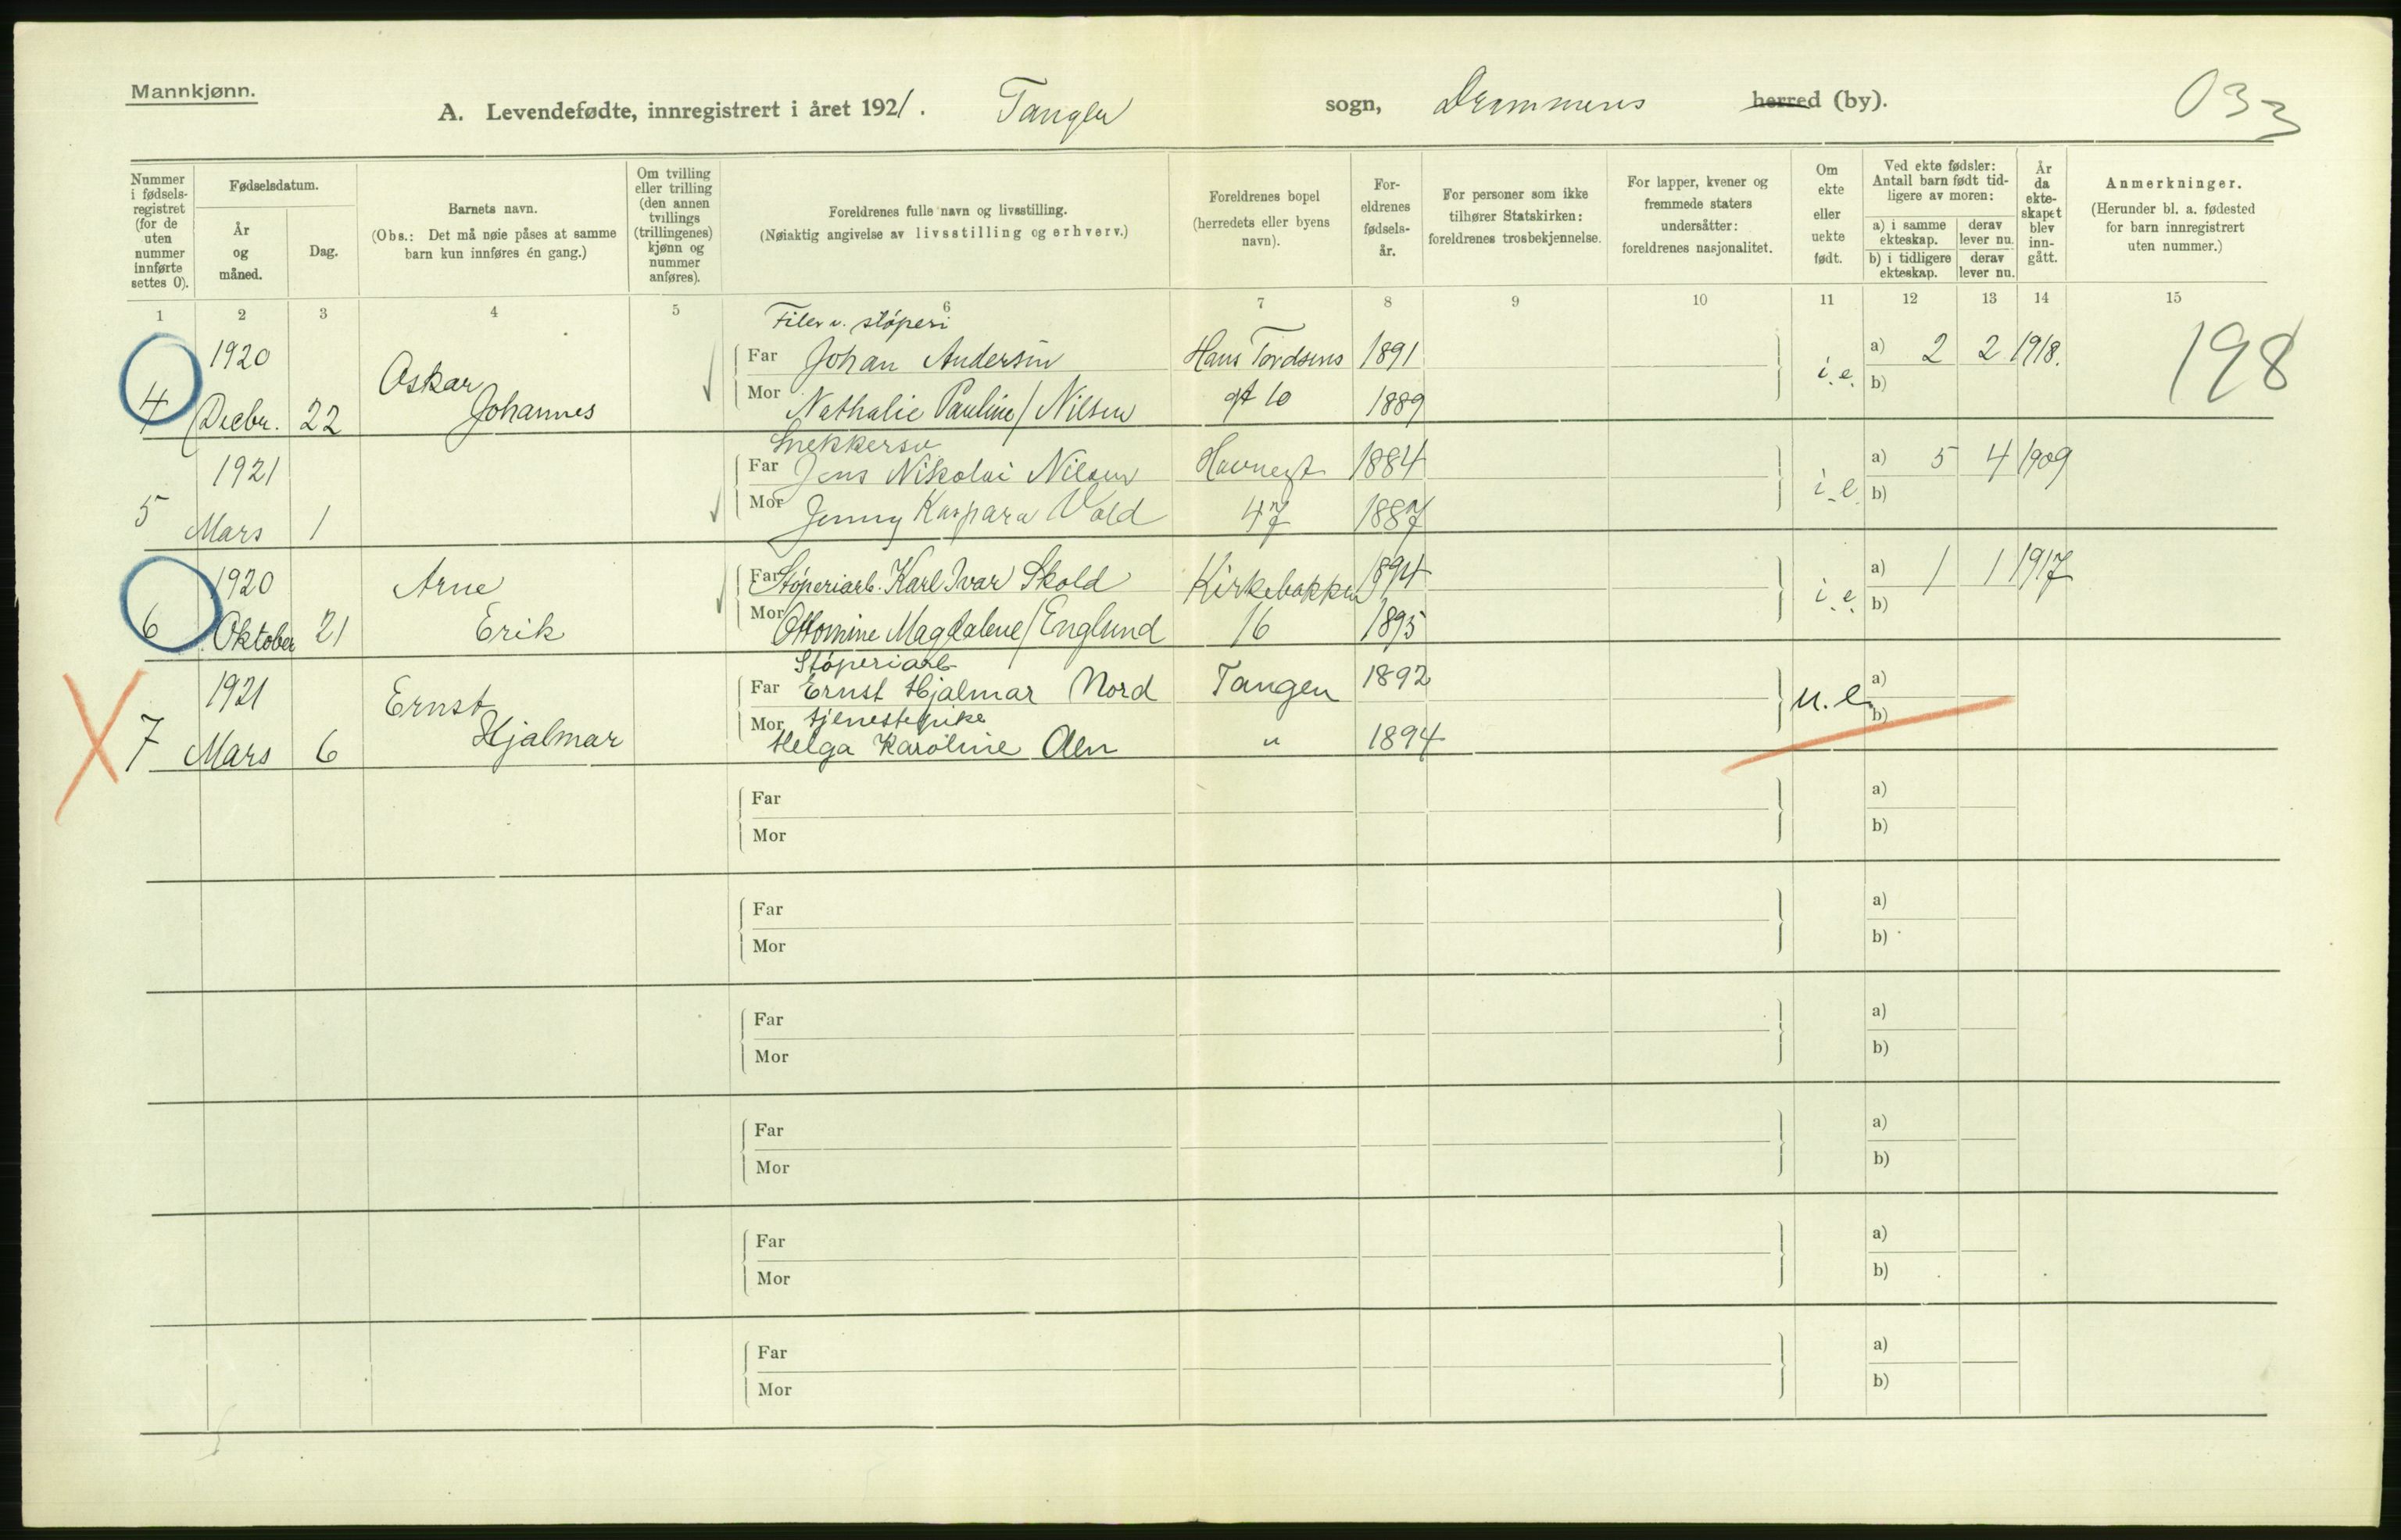 Mannkjønn.
A. Levendefødte, innregistrert i året 1921. Tangen sogn, Drammens herred (by). 033
Nummer i fødsels-registret (for de uten nummer innførte settes 0).
Fødselsdatum.
År og måned.
Dag.
Barnets navn.
(Obs.: Det må nøie påses at samme barn kun innføres én gang.)
Om tvilling eller trilling (den annen tvillings (trillingenes) kjønn og nummer anføres).
Foreldrenes fulle navn og livsstilling.
(Nøiaktig angivelse av livsstilling og erhverv.)
Foreldrenes bopel (herredets eller byens navn).
For-eldrenes fødsels-år.
For personer som ikke tilhører Statskirken: foreldrenes trosbekjennelse.
For lapper, kvener og fremmede staters undersåtter: foreldrenes nasjonalitet.
Om ekte eller uekte født.
Ved ekte fødsler: Antall barn født tid-ligere av moren:
a) i samme ekteskap.
derav lever nu.
b) i tidligere ekteskap.
derav lever nu.
År da ekte-skapet blev inn-gått.
Anmerkninger.
(Herunder bl. a. fødested for barn innregistrert uten nummer.)
1 2 3 4 5 6 7 8 9 10 11 12 13 14 15
Filer v. støperi
1920 Oskar Far Johan Andersen Hans Tordsens 1891 i.e. a) 2 2 1918. 198
4 Decbr. 22 Johannes Mor Nathalie Pauline / Nilsen gt 10 1889 b)
Snekkersv
1921 Far Jens Nikolai Nilsen Havnegt 1884 i.e. a) 5 4 1909
5 Mars 1 Mor Jenny Kaspara Vold 47 1887 b)
1920 Arne Far Støperiarb. Karl Ivar Skold Kirkebakken 1894 i.e. a) 1 1 1917
6 Oktober 21 Erik Mor Ottomine Magdalene / Englund 16 1895 b)
Støperiarb
1921 Ernst Far Ernst Hjalmar Nord Tangen 1892 u.e. a)
tjenestepike
7 Mars 6 Hjalmar Mor Helga Karoline Aen " 1894 b)
Far a)
Mor b)
Far a)
Mor b)
Far a)
Mor b)
Far a)
Mor b)
Far a)
Mor b)
Far a)
Mor b)